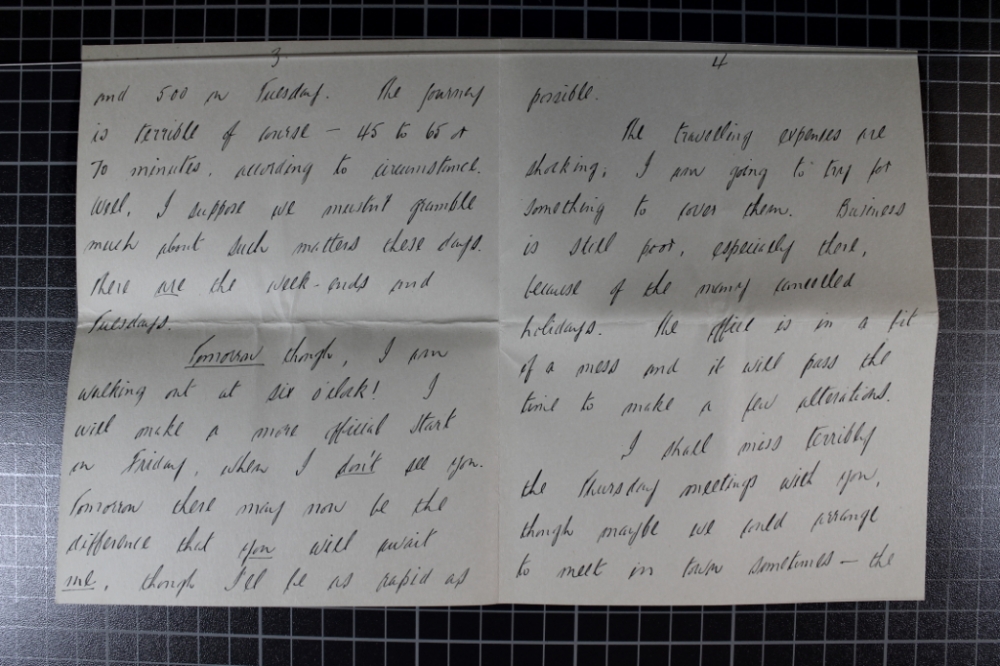 3
and 500 on Tuesday. The journey
is terrible of course – 45 to 65 or
70 minutes, according to circumstance.
Well, I suppose we mustn't grumble
much about such matters these days.
There are the week-ends and
Tuesdays.
Tomorrow though, I am
walking out at six o'clock! I
will make a more official start
on Friday, when I don't see you.
Tomorrow there may now be the
difference that you will await
me, though I'll be as rapid as
4
possible.
The travelling expenses are
shocking; I am going to try for
something to cover them. Business
is still poor, especially there,
because of the many cancelled
holidays. The office is in a bit
of a mess and it will pass the
time to make a few alterations.
I shall miss terribly
the Thursday meetings with you,
though maybe we could arrange
to meet in town sometimes – the